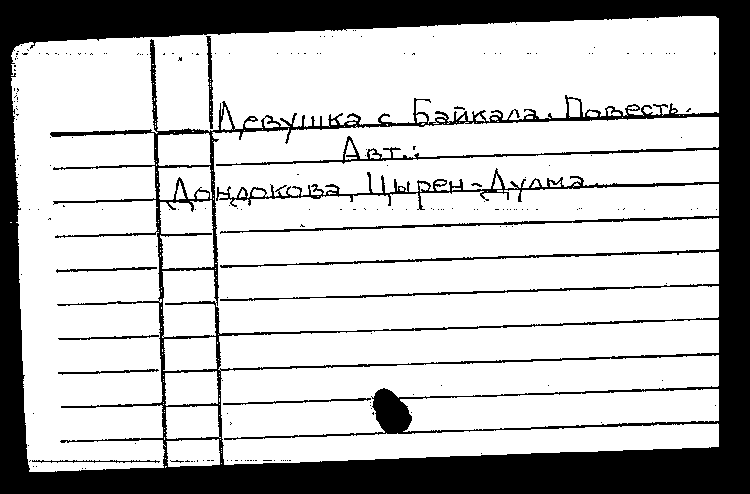 Девушка с Байкала. Повесть.
Авт.:
Дондокова, Цырен-Дулма